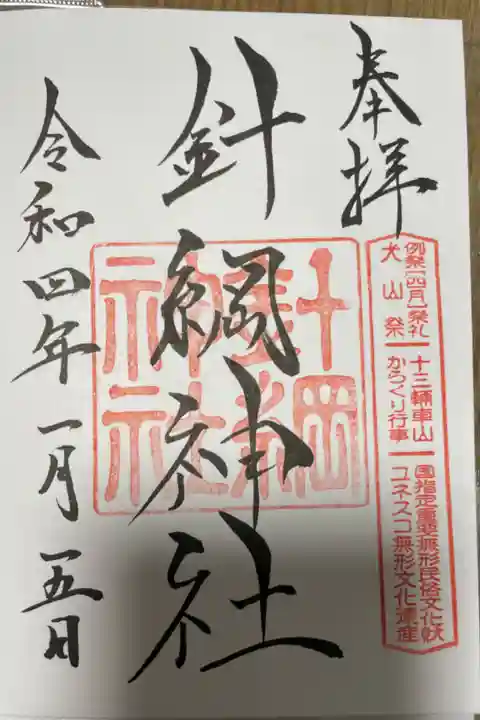 奉拝
例祭「四月」祭礼
犬山祭
十三輛車山
からくり行事
国指定重要無形民俗文化財
ユネスコ無形文化遺産
針綱神社
針綱神社
令和四年一月一五日